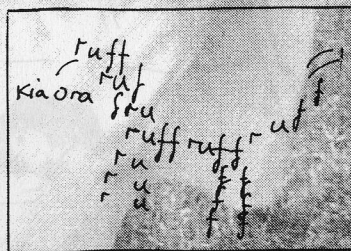 ruff
ruf f
Kia Ora
fru
ruff ruff ruf
ru f f
r u f f
r u f f